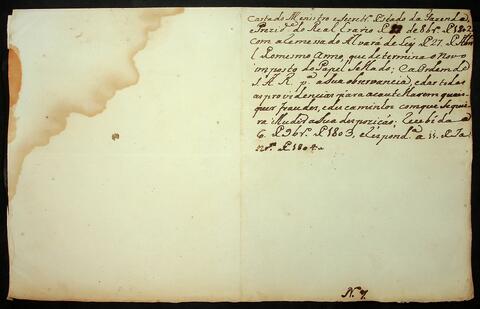 Carta do Ministro e Secretr.º Estado da Fazenda
e Prezid.e do Real Erario de 22 de 8br.º de 1802
com a remessa do Alvará de Ley de 27 de Abril
do mesmo Anno, que determina o Novo
imposto do Papel Sellado; Ca Ordem de
S. A. R. p.ª a sua observancia, e dar todas
as providencias para acautellarem quaes
quer fraudes, e descaminhos com que se queira
Mudar a sua dispozição; recebida a
6 de 9br.º de 1803, e respond.ª a 11 de Ja
nr.º de 1804.
N. 7.